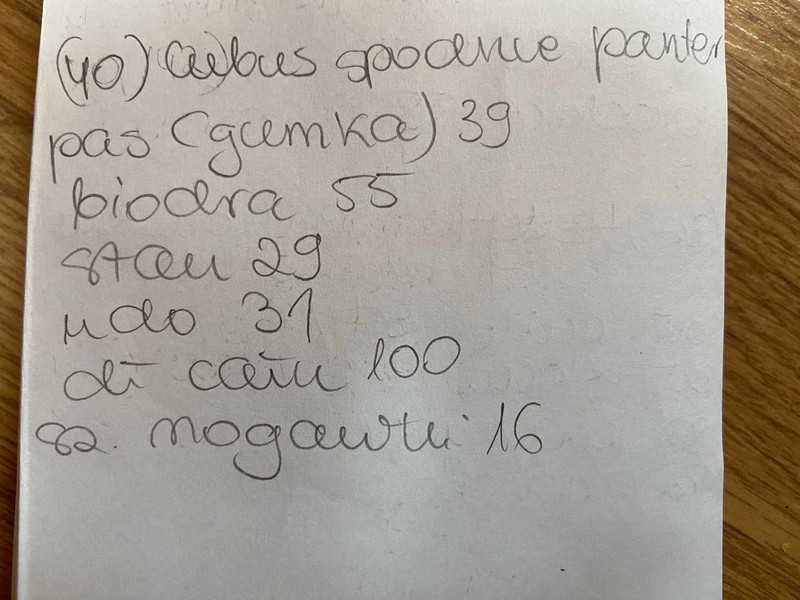 (40) spodnie panter
pas (gumka) 39
biodra 55
stan 29
udo 31
dł całk 100
sz. nogawki 16